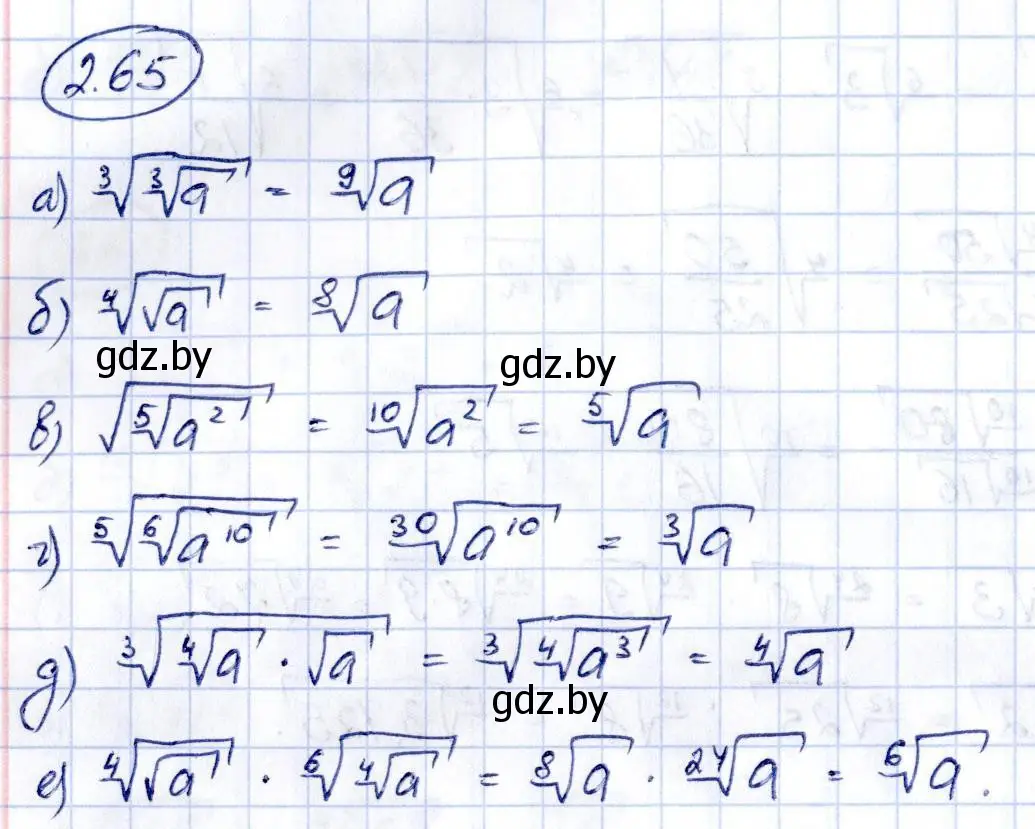 2.65
а) ∛(∛a) = ⁹√a
б) ⁴√(√a) = ⁸√a
gdz.by gdz.by
в) √(⁵√(a²)) = ¹⁰√(a²) = ⁵√a
г) ⁵√(⁶√(a¹⁰)) = ³⁰√(a¹⁰) = ³√a
д) ³√(⁴√a · √a) = ³√(⁴√(a³)) = ⁴√a
gdz.by
е) ⁴√(√a) · ⁶√(⁴√a) = ⁸√a · ²⁴√a = ⁶√a.